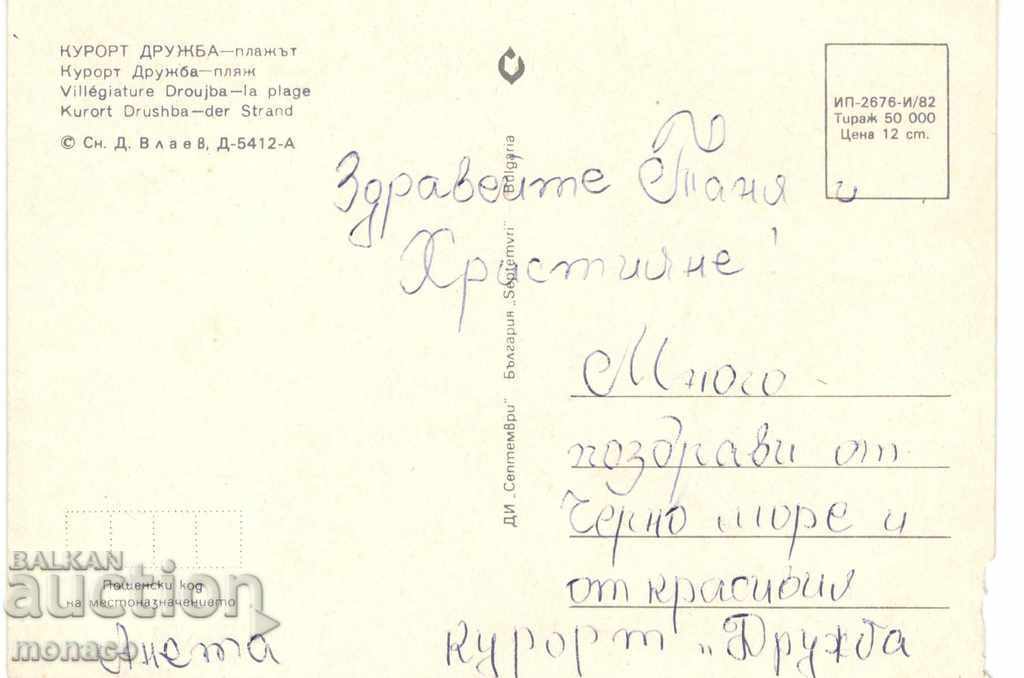 КУРОРТ ДРУЖБА—плажът
Курорт Дружба—пляж
Villégiature Droujba—la plage
Kurort Drushba—der Strand
© Сн. Д. Влаев, Д-5412-А
ИП-2676-И/82
Тираж 50 000
Цена 12 ст.
ДИ „Септември" България „Septemvri" Bulgaria
Здравейте Таня и
Християне!
Много
поздрави от
Черно море и
от красивия
курорт „Дружба
Анета
Пощенски код
на местоназначението
BALKAN
auction
monaco